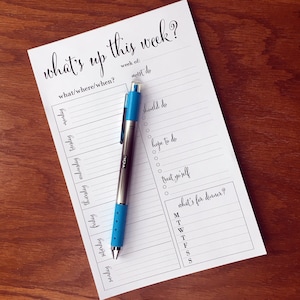 what's up this week?
week of:
what/where/when?
must do
should do
hope to do
treat yo self
monday
tuesday
wednesday
thursday
friday
saturday
sunday
what's for dinner?
M
T
W
T
F
S
S